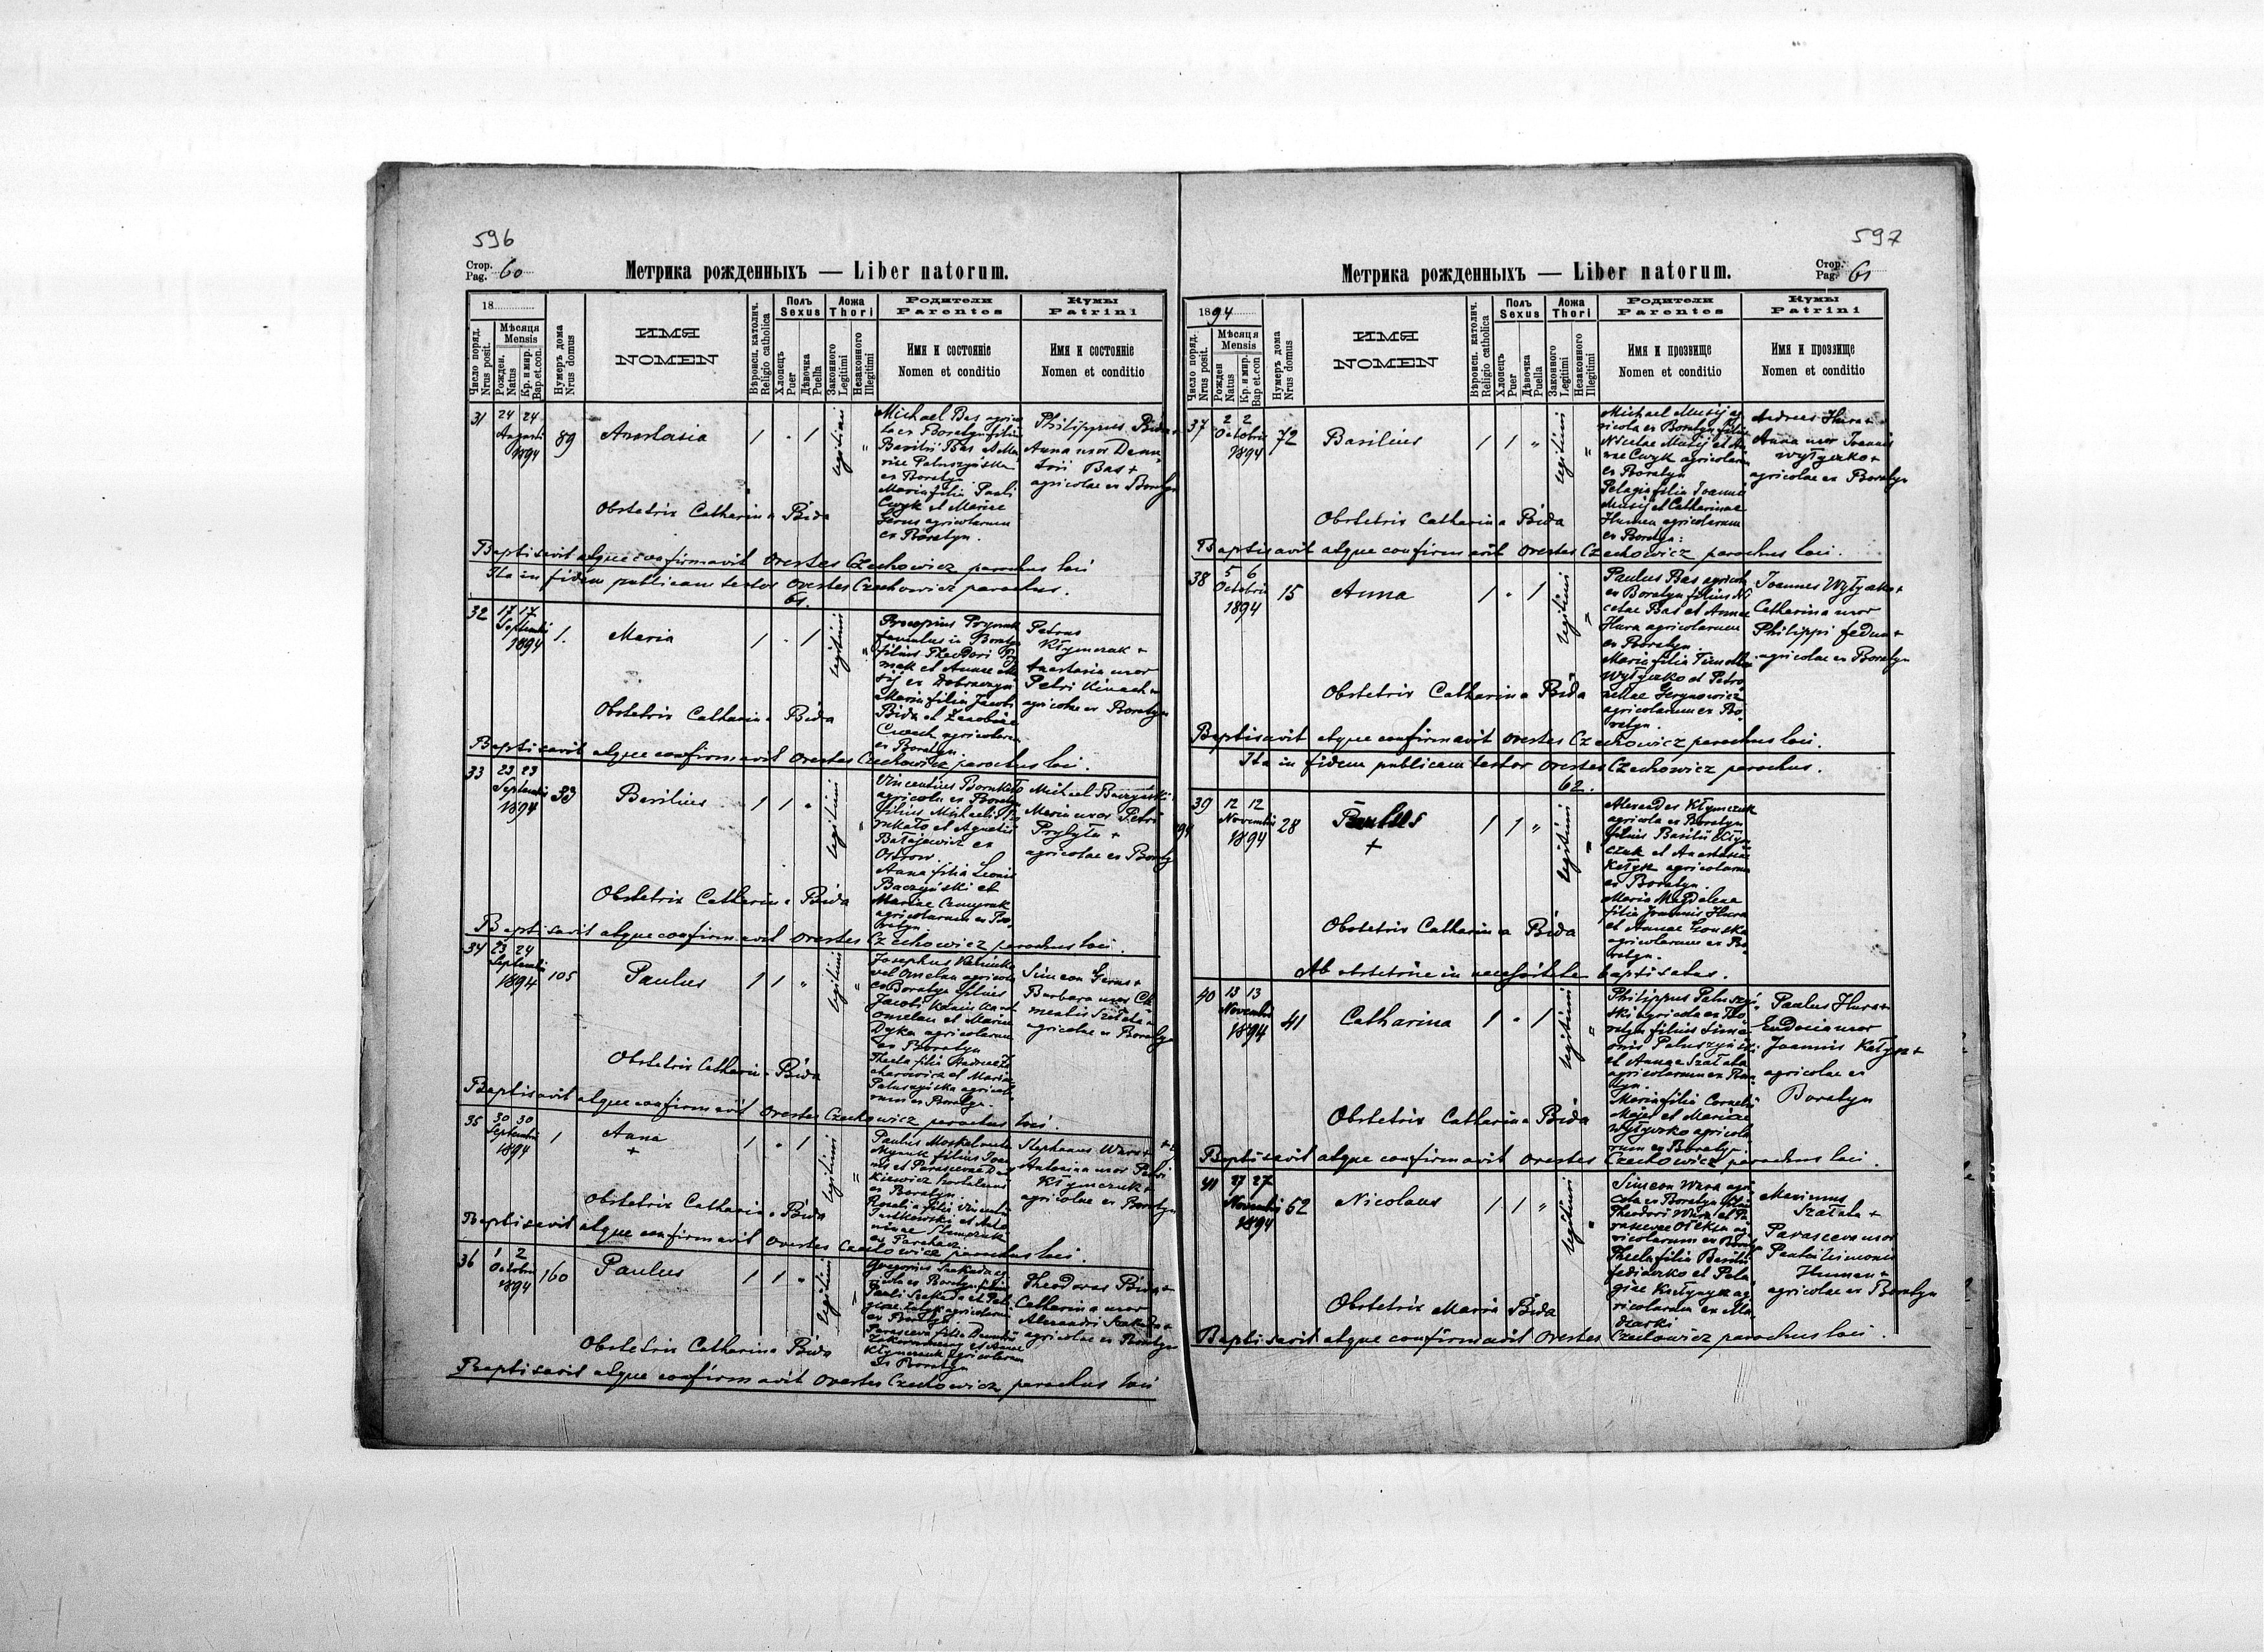 596
Стор.
Pag. 60
Метрика рожденныхъ — Liber natorum.
18
Число поряд.
Nrus posit.
Мѣсяця
Mensis
Рожден.
Natus
Кр. и мир.
Bap.et.con.
Нумеръ дома
Nrus domus
ИМЯ
NOMEN
Вѣроисп. католич.
Religio catholica
Полъ
Sexus
Хлопецъ
Puer
Дѣвочка
Puella
Ложа
Thori
Законного
Legitimi
Незаконного
Illegitimi
Родители
Parentes
Имя и состояніе
Nomen et conditio
Кумы
Patrini
Имя и состояніе
Nomen et conditio
31
24 24
Augusti
1894
89
Anastasia
1 · 1
legitimi
"
Michael Bas agrico
la ex Boratyn filius
Basilii Bas et Ma
riae Paluszyńska
ex Boratyn
Maria filia Pauli
Cwyk et Mariae
Gerus agricolarum
ex Boratyn.
Philippus Bida +
Anna uxor Deme
trii Bas +
agricolae ex Boratyn
Obstetrix Catharina Bida
Baptisavit atque confirmavit Orestes Czechowicz parochus loci
Ita in fidem publicam testor Orestes Czechowicz parochus.
61.
32
17 17
Septembris
1894
1.
Maria
1 · 1
legitimi
"
Procopius Prymak
famulus in Boratyn
filius Theodori Pry
mak et Annae
ex Dobraczyn
Maria filia Jacobi
Bida et Jacobinae
Czuch agricolarum
ex Boratyn.
Petrus
Kłymczak +
Anastasia uxor
Petri Kinach +
agricolae ex Boratyn
Obstetrix Catharina Bida
Baptisavit atque confirmavit Orestes Czechowicz parochus loci.
33
23 23
Septembris
1894
Basilius
1 1 "
legitimi
"
Vincentius
agricola ex Boratyn
filius Michaelis
et Agnetis
Batajewicz ex
Ostrow.
Anna filia Leonis
Baczyński et
Mariae
agricolarum ex Bo
ratyn.
Michael Baczyński
Maria uxor Petri
Prybyła +
agricolae ex Boratyn
Obstetrix Catharina Bida
Baptisavit atque confirmavit Orestes Czechowicz parochus loci.
34
23 24
Septembris
1894
105
Paulus
1 1 "
legitimi
"
Josephus
vel Omelan agricola
ex Boratyn filius
Jacobi
Omelan et Mariae
Dyka agricolarum
ex Boratyn
Thecla filia Andreae Za
charowicz et Mariae
Paluszyńska agricola
rum ex Boratyn.
Simeon Gerus +
Barbara uxor Cle
mentis Szałata +
agricolae ex Boratyn
Obstetrix Catharina Bida
Baptisavit atque confirmavit Orestes Czechowicz parochus loci.
35
30 30
Septembris
1894
1
Anna
+
1 · 1
legitimi
"
Paulus
filius Joan
nis et Parascevae
kiewicz hortulanus
ex Boratyn.
Rosalia filia Vincentii
Jutkowski et Anto
ninae
ex Parchacz.
Stephanus Wara +
Antonina uxor Petri
Kłymczuk +
agricolae ex Boratyn
Obstetrix Catharina Bida
Baptisavit atque confirmavit Orestes Czechowicz parochus loci.
36
1 2
Octobris
1894
160
Paulus
1 1 "
legitimi
"
Gregorius Szakada ag
ricola ex Boratyn filius
Pauli Szakada et Pela
giae agricolarum
ex Boratyn
Parasceva filia Demetrii
et Annae
Kłymczuk agricolarum
ex Boratyn
Theodorus Bida +
Catharina uxor
Alexandri Szakada +
agricolae ex Boratyn
Obstetrix Catharina Bida
Baptisavit atque confirmavit Orestes Czechowicz parochus loci
597
Стор.
Pag. 61
Метрика рожденныхъ — Liber natorum.
1894
Число поряд.
Nrus posit.
Мѣсяця
Mensis
Рожден
Natus
Кр. и мир.
Bap et.con
Нумеръ дома
Nrus domus
ИМЯ
NOMEN
Вѣроисп. католич.
Religio catholica
Полъ
Sexus
Хлопецъ
Puer
Дѣвочка
Puella
Ложа
Thori
Законного
Legitimi
Незаконного
Illegitimi
Родители
Parentes
Имя и прозвище
Nomen et conditio
Кумы
Patrini
Имя и прозвище
Nomen et conditio
37
2 2
Octobris
1894
72
Basilius
1 1 "
legitimi
"
Michael Musij ag
ricola ex Boratyn filius
Nicolae Musij et An
nae Cwyk agricolarum
ex Boratyn
Pelagia filia Joannis
Musij et Catharinae
Humen agricolarum
ex Boratyn.
Andreas Hura +
Anna uxor Joannis
Wyłyczko +
agricolae ex Boratyn
Obstetrix Catharina Bida
Baptisavit atque confirmavit Orestes Czechowicz parochus loci.
38
5 6
Octobris
1894
15
Anna
1 · 1
legitimi
"
Paulus Bas agricola
ex Boratyn filius Ni
colae Bas et Annae
Hura agricolarum
ex Boratyn
Maria filia Timothei
Wyłyczko et Petro
nellae Gerynowicz
agricolarum ex Bo
ratyn.
Joannes Wyłyczko +
Catharina uxor
Philippi Fedun +
agricolae ex Boratyn
Obstetrix Catharina Bida
Baptisavit atque confirmavit Orestes Czechowicz parochus loci.
Ita in fidem publicam testor Orestes Czechowicz parochus.
62.
39
12 12
Novembris
1894
28
Paulus
+
1 1 "
legitimi
"
Alexander Kłymczuk
agricola ex Boratyn
filius Basilii Kłym
czuk et Anastasiae
Kełyk agricolarum
ex Boratyn.
Maria Magdalena
filia Joannis Hura
et Annae
agricolarum ex Bo
ratyn.
Obstetrix Catharina Bida
Ab obstetrice in necessitate baptisatus.
40
13 13
Novembris
1894
41
Catharina
1 · 1
legitimi
"
Philippus Paluszyń
ski agricola ex Bo
ratyn filius Sime
onis Paluszyński
et Annae Szałata
agricolarum ex Bora
tyn.
Maria filia Cornelii
Majer et Mariae
Wyłyczko agricola
rum ex Boratyn.
Paulus Hura +
Eudocia uxor
Joannis Kełyk +
agricolae ex
Boratyn
Obstetrix Catharina Bida
Baptisavit atque confirmavit Orestes Czechowicz parochus loci.
41
27 27
Novembris
1894
62
Nicolaus
1 1 "
legitimi
"
Simeon Wara agri
cola ex Boratyn filius
Theodori Wara et Pa
rascevae Ołeksa ag
ricolarum ex Boratyn
Thecla filia Basilii
Fediuszko et Pela
giae ag
ricolarum ex Ma
dzarki
Maximus
Szałata +
Parasceva uxor
Pauli Simonis
Humen +
agricolae ex Boratyn
Obstetrix Maria Bida
Baptisavit atque confirmavit Orestes Czechowicz parochus loci.